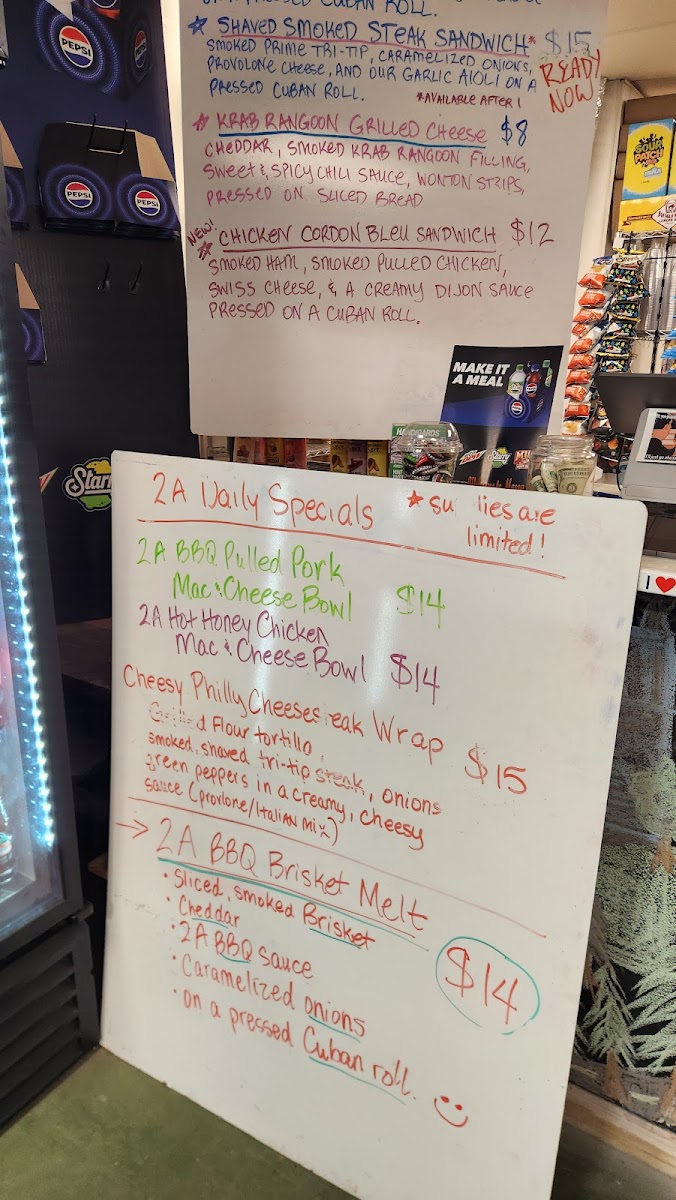 ON A PRESSED CUBAN ROLL.
★ SHAVED SMOKED STEAK SANDWICH* $15
SMOKED PRIME TRI-TIP, CARAMELIZED ONIONS,
PROVOLONE CHEESE, AND OUR GARLIC AIOLI ON A
PRESSED CUBAN ROLL. *AVAILABLE AFTER 1
READY
NOW
★ KRAB RANGOON GRILLED CHEESE $8
CHEDDAR, SMOKED KRAB RANGOON FILLING,
SWEET & SPICY CHILI SAUCE, WONTON STRIPS,
PRESSED ON SLICED BREAD
NEW!
★ CHICKEN CORDON BLEU SANDWICH $12
SMOKED HAM, SMOKED PULLED CHICKEN,
SWISS CHEESE, & A CREAMY DIJON SAUCE
PRESSED ON A CUBAN ROLL.
MAKE IT
A MEAL
pepsi
pepsi
pepsi
pepsi
Starry
HANDYGARDS
Starry
SOUR
PATCH
I ❤
2A Daily Specials
★ su lies are
limited!
2A BBQ Pulled Pork
Mac & Cheese Bowl $14
2A Hot Honey Chicken
Mac & Cheese Bowl $14
Cheesy Philly Cheeses eak Wrap $15
Grilled Flour tortilla,
smoked, shaved tri-tip steak, onions
green peppers in a creamy, cheesy
sauce (provlone/Italian mix)
→ 2A BBQ Brisket Melt
• Sliced, smoked Brisket
• Cheddar
• 2A BBQ Sauce
• Caramelized onions
• on a pressed Cuban roll.
$14